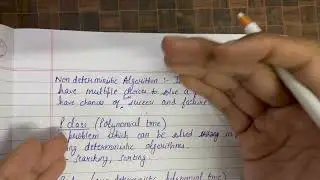 Non deterministic Algorithm :- I
have multiple choices to solve a
have chance of success and failure
P class (Polynomial time)
problem which can be solved using
deterministic algorithms.
- searching, sorting.